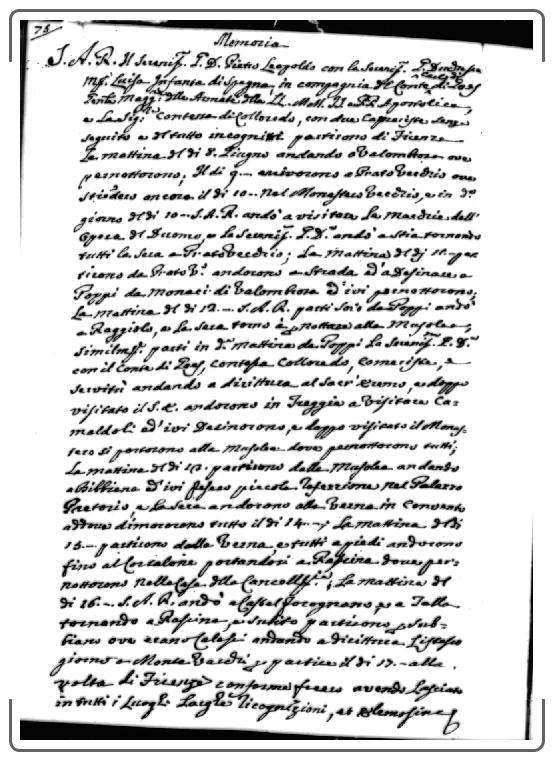 75
Memoria
S. A. R. Il Sereniss. P. D. Pietro Leopoldo con la Sereniss. P. Duchessa
Mss. Luisa Infanta di Spagna, in compagnia del Conte di
Magg. della Armata delle LL. MM. II. e RR. Apostolica,
e La Sig. Contessa di Colloredo, con due Cameriste senza
seguito e del tutto incogniti partirono di Firenze
La mattina del di 8. Giugno andando a Valombrosa ove
pernottorono; Il di 9 arrivorono a Prato Vecchio ove
stiedero ancora il di 10 nel Monastero Vecchio, e in do
giorno del di 10 S. A. R. andò a visitare La Macchia dell'
Opera del Duomo, e La Sereniss. P. Da andò a Stia tornando
tutti la sera a Prato Vecchio; La mattina del di 11 par-
tirono da Prato Vo andorono a Strada ed a Desinare a
Poppi da Monaci di Valombrosa ed ivi pernottorono;
La mattina del di 12 S. A. R. partì da Poppi andò
a Raggiolo, e La sera tornò a pernottare alla Musolea,
similmte partì in da mattina da Poppi La Sereniss. P. Da
con il Conte di Contessa Colloredo, Cameriste, e
Servitù andando a dirittura al Sacr' Eremo, e doppo
visitato il S. E. andorono in Treggia a Visitare Ca-
maldoli ed ivi Desinorono, e doppo visitato il Monas-
tero si portorono alla Musolea dove pernottorono tutti;
La mattina del di 13. partirono dalla Musolea andando
a Bibbiena ed ivi fecero piccola refezione nel Palazzo
Pretorio, e La sera andorono alla Verna in Convento
addove dimororono tutto il di 14; La mattina del di
15 partirono dalla Verna e tutti a piedi andorono
fino al Corsalone portandosi a Rassina dove per-
nottorono nella Casa della Cancellia; La mattina del
di 16 S. A. R. andò a Castel Focognano, e a Talla
tornando a Rassina, e subito partirono p Sub-
biano ove erano Calessi andando a dirittura L'istesso
giorno a Monte Varchi p partire il di 17 alla
volta di Firenze conforme fecero avendo Lasciato
in tutti i Luoghi Larghe ricognizioni, et elemosine